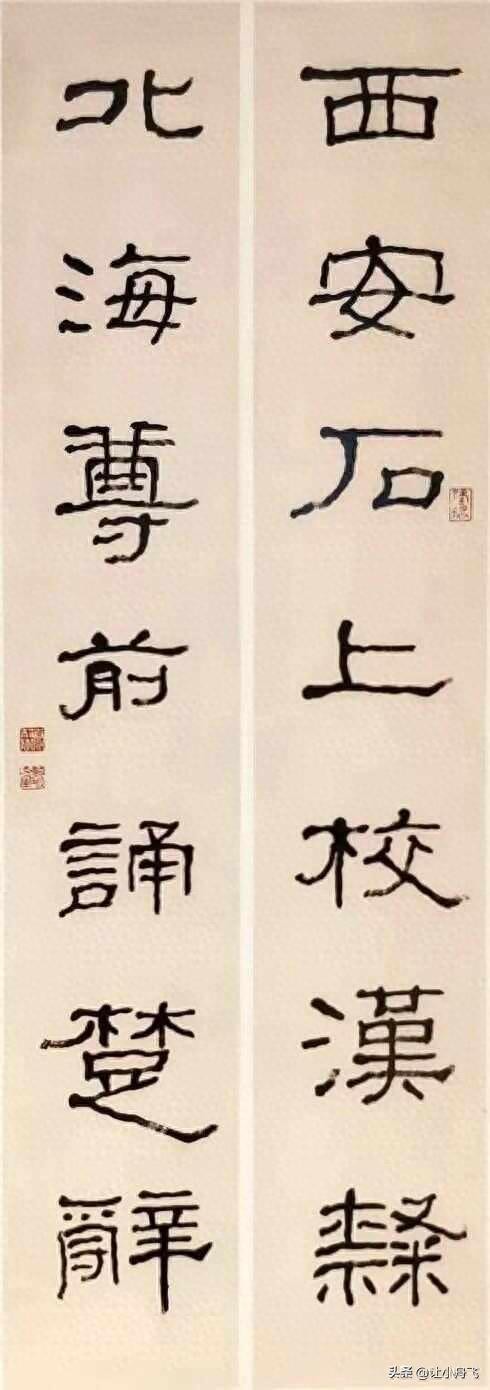 西安石上校漢隸
北海尊前誦楚辭
头条@让小丹飞